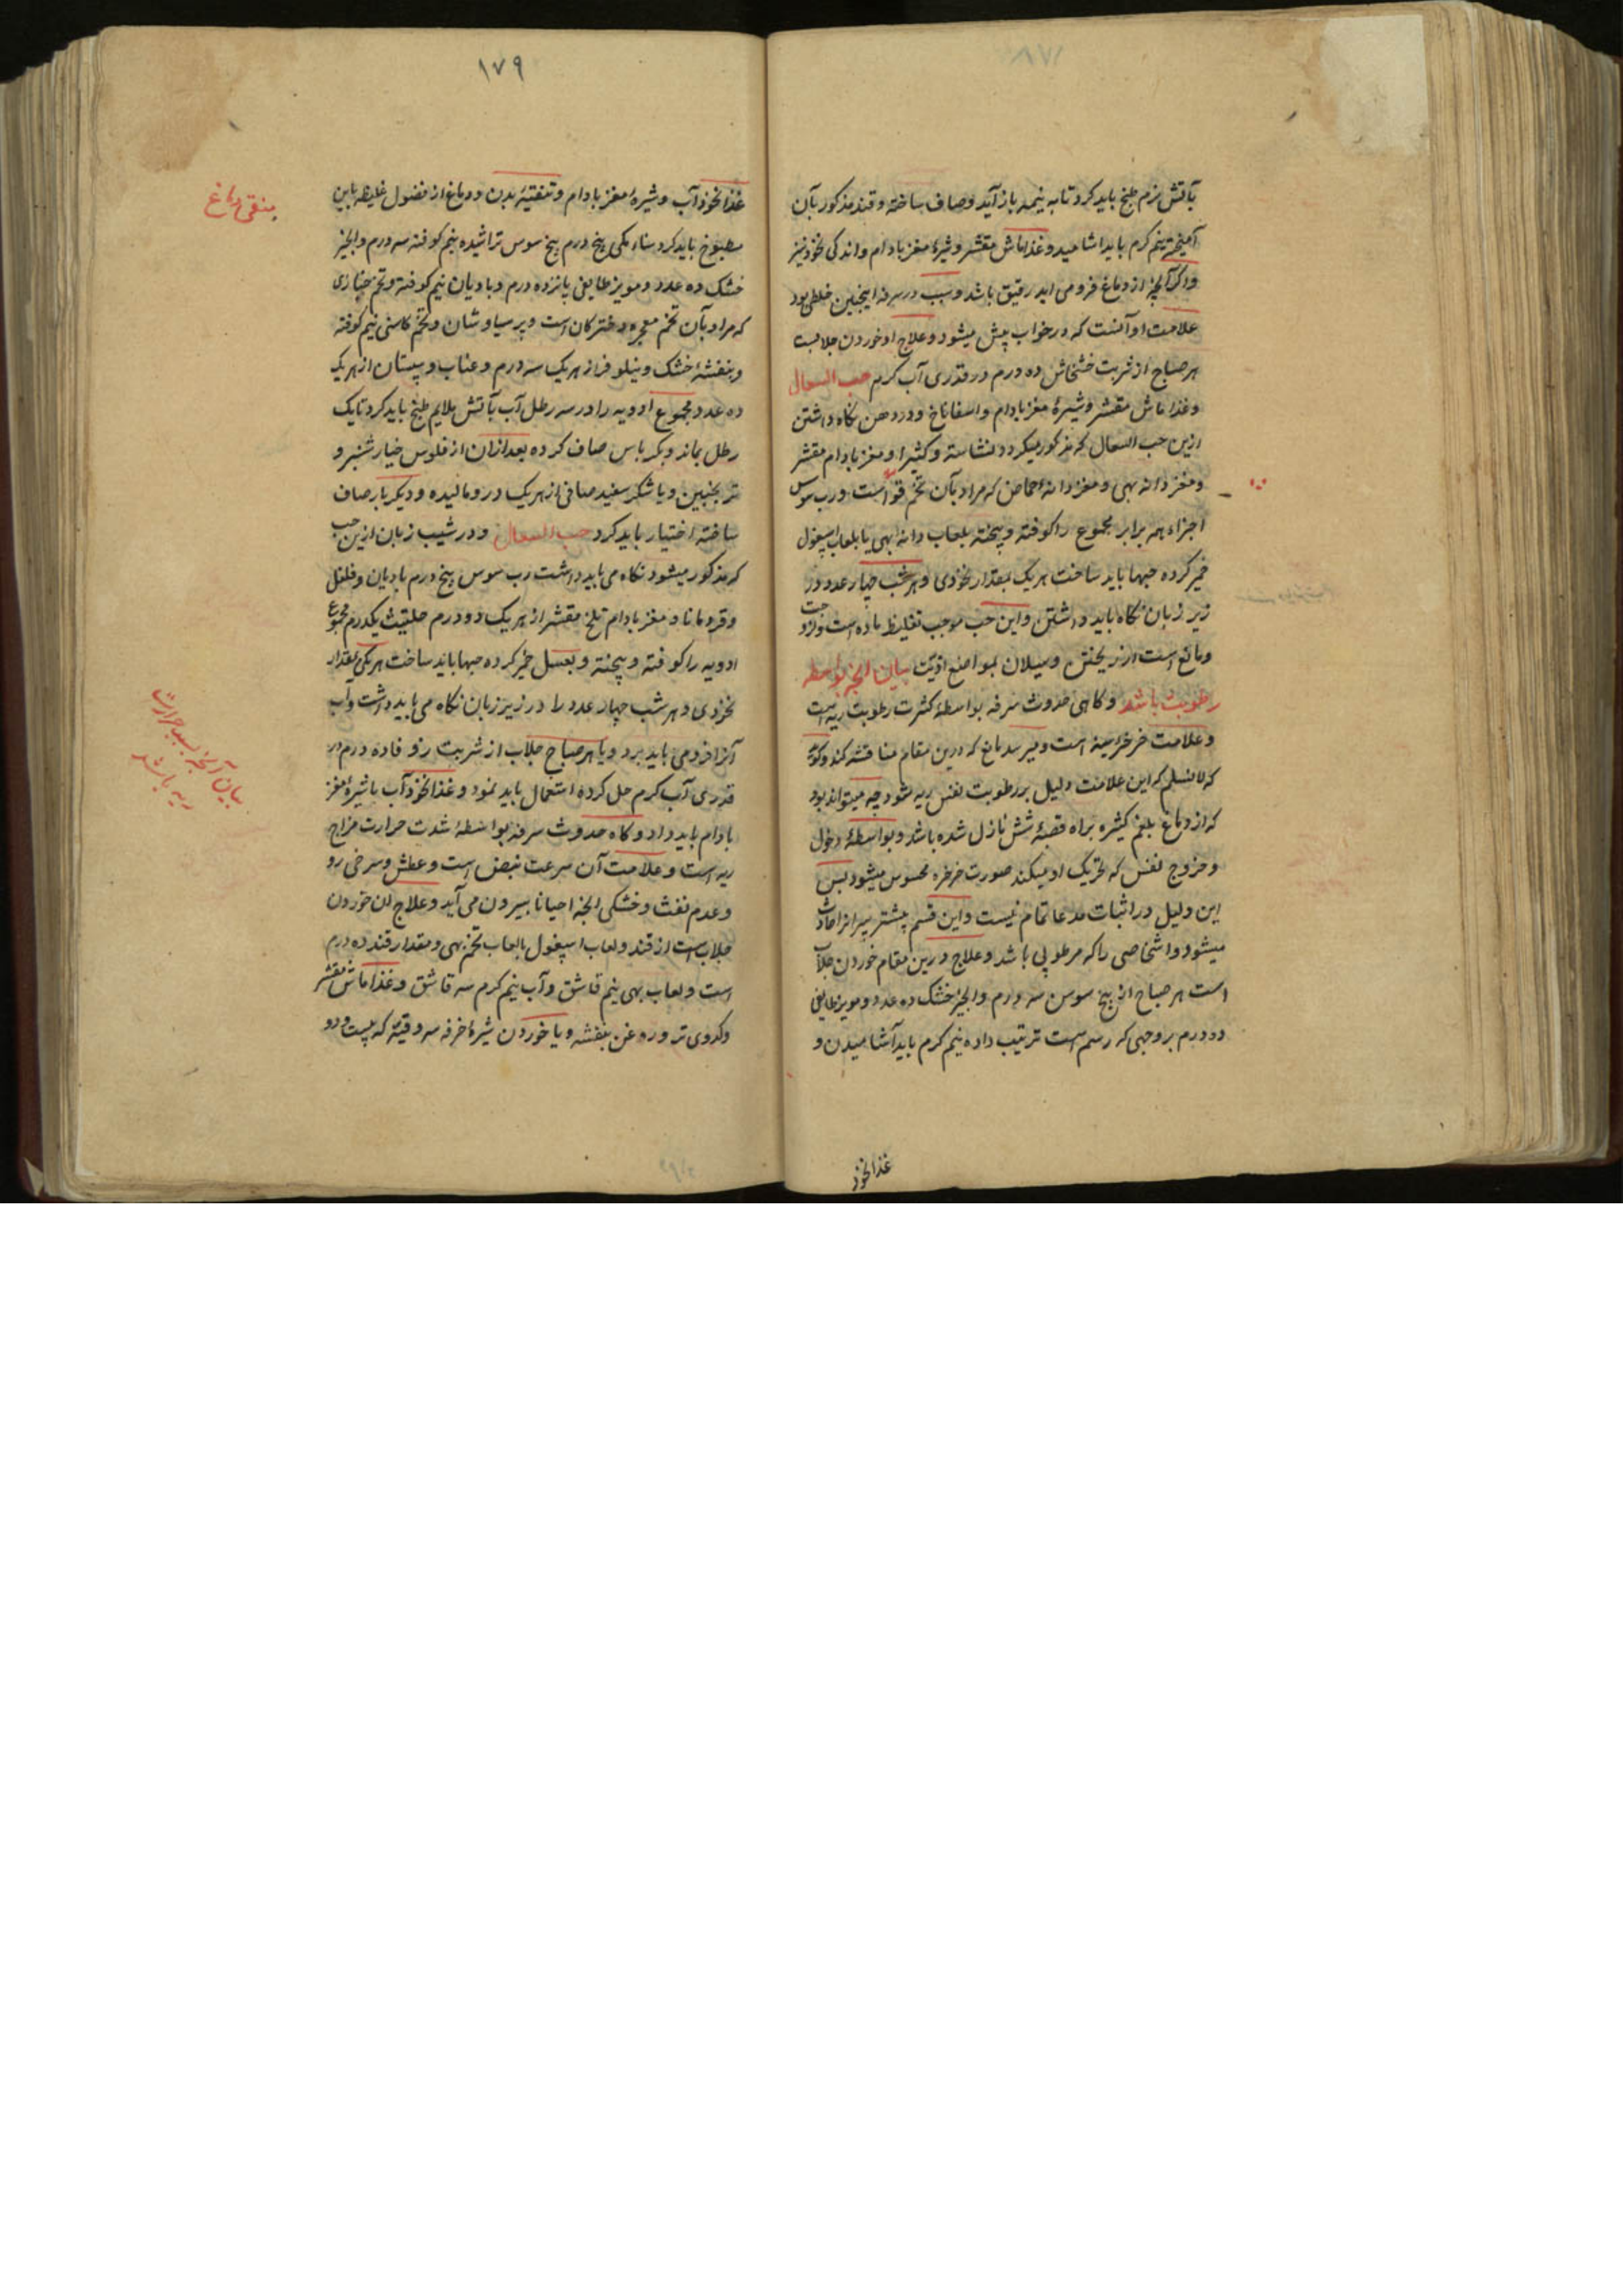 بآتش نرم طبخ باید کرد تا به نیمه باز آید و صاف ساخته و قند مذکور بآن
آمیخته نیم گرم باید اشامید و غذا ماش مقشر و شیرهٔ مغز بادام و اندکی نخود نیز
و اگر آنچه از دماغ فرو می اید رقیق باشد و سبب در سرفه اینچنین خلطی بود
علامت او آنست که در خواب پیش میشود و علاج او خوردن جلابست
هر صباح از شربت خشخاش ده درم در قدری آب گرم حب السعال
و غذا ماش مقشر و شیرهٔ مغز بادام و اسفاناخ و در دهن نگاه داشتن
ازین حب السعال که مذکور میگردد نشاسته و کثیرا و مغز بادام مقشر
و مغز دانه بهی و مغز دانهٔ حماض که مراد بآن تخم است و رب سوس
اجزاء همه برابر مجموع را کوفته و پیخته بلعاب دانه بهی یا بلعاب اسپغول
خمیر کرده حبها باید ساخت هر یک بمقدار نخودی و هر شب چهار عدد در
زیر زبان نگاه باید داشتن و این حب موجب تغلیظ ماده است
و مانع است از ریختن و سیلان بمواضع اذیت بیان آنچه بواسطه
رطوبت باشد و گاهی حدوث سرفه بواسطهٔ کثرت رطوبت ریه است
و علامت خرخرهٔ سینه است و میرسد مانع که درین مقام مناقشه کند و گوید
که لا نسلم که این علامت دلیل بر رطوبت نفس ریه شود چه میتواند بود
که از دماغ بلغم کثیره براه قصبهٔ شش نازل شده باشد و بواسطهٔ دخول
و خروج نفس که تحریک او میکند صورت خرخره محسوس میشود پس
این دلیل در اثبات مدعا تمام نیست و این قسم بیشتر پیرانرا حادث
میشود و اشخاصی را که مرطوبی باشد و علاج درین مقام خوردن جلاب
است هر صباح از بیخ سوس سه درم و انجیر خشک ده عدد و مویز طایفی
ده درم بر وجهی که رسم است ترتیب داده نیم گرم باید آشامیدن و
غذا نخود
۱۷۹
غذا نخود آب و شیرهٔ مغز بادام و تنقیهٔ بدن و دماغ از فضول غلیظه باین
مطبوخ باید کرد سناء مکی پنج درم بیخ سوس تراشیده نیم کوفته سه درم و انجیر
خشک ده عدد و مویز طایفی پانزده درم و بادیان نیم کوفته و تخم خبازی
که مراد بآن تخم معجره دخترکان است و پرسیاوشان و تخم کاسنی نیم کوفته
و بنفشهٔ خشک و نیلوفر از هر یک سه درم و عناب و سپستان از هر یک
ده عدد مجموع ادویه را در سه رطل آب بآتش ملایم طبخ باید کرد تا یک
رطل بماند و بکرباس صاف کرده بعد ازان از فلوس خیار شنبر و
ترنجبین و یا شکر سفید صافی از هر یک درو مالیده و دیگر بار صاف
ساخته اختیار باید کرد حب السعال و در شیب زبان ازین حب
که مذکور میشود نگاه می باید داشت رب سوس پنج درم بادیان و فلفل
و قردمانا و مغز بادام تلخ مقشر از هر یک دو درم حلتیت یکدرم مجموع
ادویه را کوفته و پیخته و بعسل خمیر کرده حبها باید ساخت هر یکی بمقدار
نخودی و هر شب چهار عدد را در زیر زبان نگاه می باید داشت و آب
آنرا فرو می باید برد و یا هر صباح جلاب از شربت زوفا ده درم در
قدری آب گرم حل کرده استعمال باید نمود و غذا نخود آب با شیرهٔ مغز
بادام باید داد و گاه حدوث سرفه بواسطهٔ شدت حرارت مزاج
ریه است و علامت آن سرعت نبض است و عطش و سرخی رو
و عدم نفث و خشکی آنچه احیانا بیرون می آید و علاج ان خوردن
جلابست از قند و لعاب اسپغول یا لعاب تخم بهی و مقدار قند ده درم
است و لعاب بهی نیم قاشق و آب نیم گرم سه قاشق و غذا ماش مقشر
و کدوی تر و روغن بنفشه و یا خوردن شیرهٔ خرفه سه وقیه که بیست و دو
منقی دماغ
بیان آنچه بسبب حرارت
ریه باشد